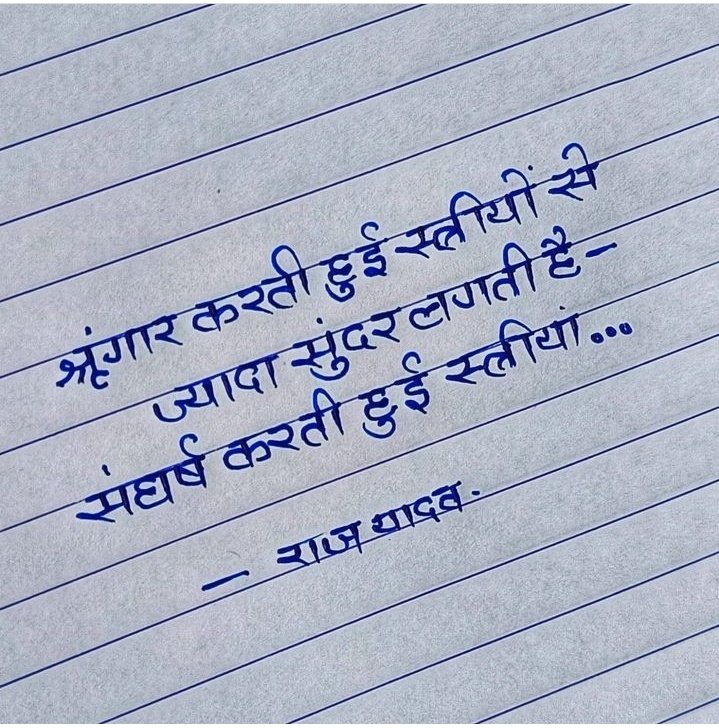 श्रृंगार करती हुई स्त्रीयों से
ज्यादा सुंदर लगती है-
संघर्ष करती हुई स्त्रीयां...
- राज यादव.